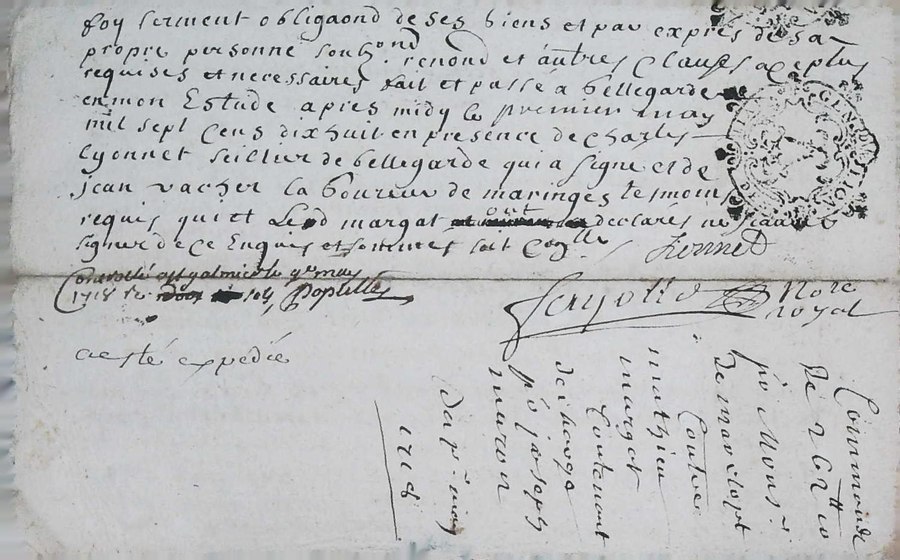 foy serment obligaond de ses biens et par exprés de sa
propre personne soubz.ond renond et autres clauses a ce plus
requises et necessaires fait et passé a bellegarde
en mon Estude apres midy le premier may
mil sept cens dixhuit en presence de charles
Lyonnet seillier de bellegarde qui a signe et de
jean vacher laboureur de maringes tesmoins
requis qui et Led margat ont declares ne scavoir
signer de ce Enquis et
Lionnet
Controllé a st galmier le 9e may
1718
notre
royal
a esté expediée
Commande
de
po Mons.r
de
Contre
mathieu
margat
Contenant
descharge
po joseph
du pr. may
1718